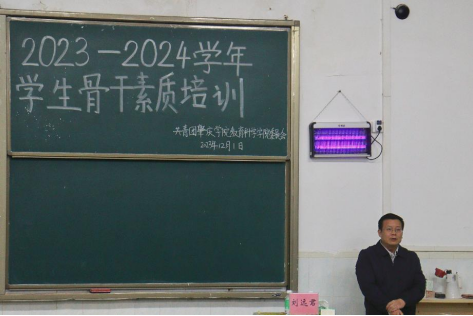 2023—2024学年
学生骨干素质培训
共青团肇庆学院教育科学学院委员会
2023年12月1日
刘选君